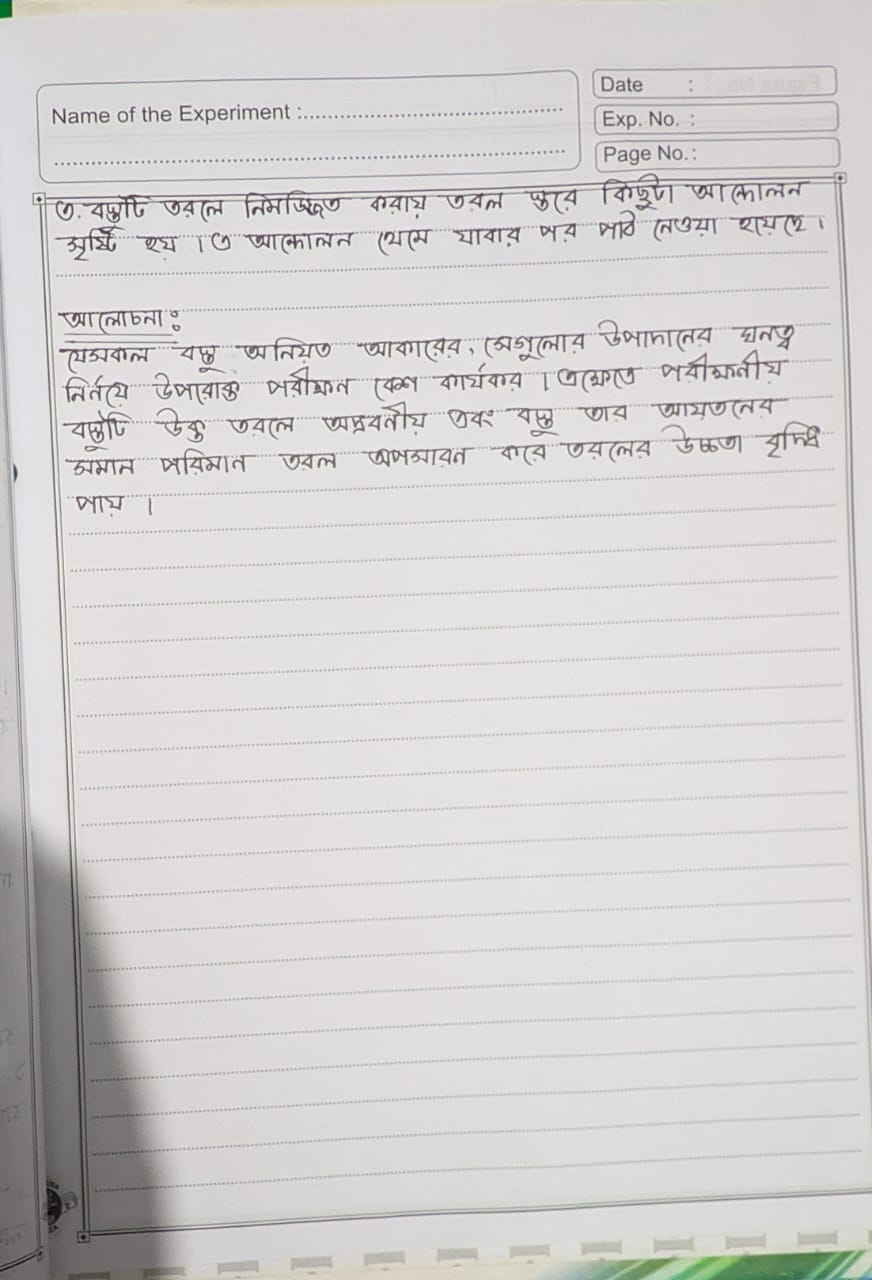 Name of the Experiment :
Date :
Exp. No. :
Page No.:
৩. বস্তুটি তরলে নিমজ্জিত করায় তরল স্তরে কিছুটা আন্দোলন
সৃষ্টি হয় । এ আন্দোলন থেমে যাবার পর পাঠ নেওয়া হয়েছে ।
আলোচনা :
যেসকল বস্তু অনিয়ত আকারের, সেগুলোর উপাদানের ঘনত্ব
নির্নয়ে উপরোক্ত পরীক্ষন বেশ কার্যকর । এক্ষেত্রে পরীক্ষনীয়
বস্তুটি উক্ত তরলে অদ্রবনীয় এবং বস্তু তার আয়তনের
সমান পরিমান তরল অপসারন করে তরলের উচ্চতা বৃদ্ধি
পায় ।